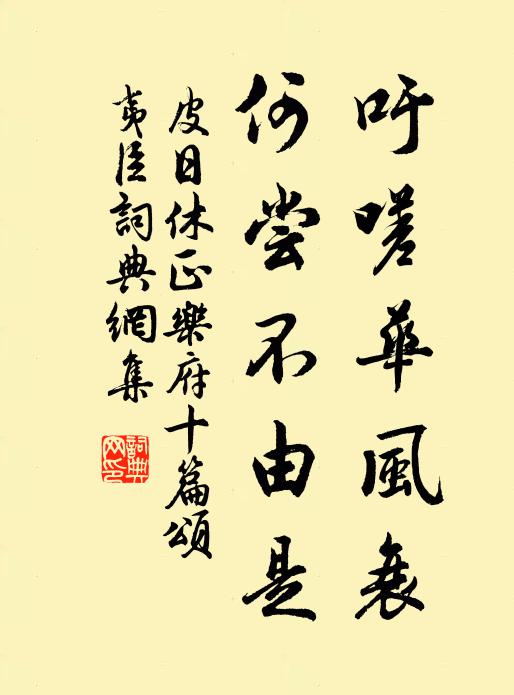 吁嗟華風衰
何嘗不由是
皮日休正樂府十篇頌
夷臣詞典網集
詞典
网印